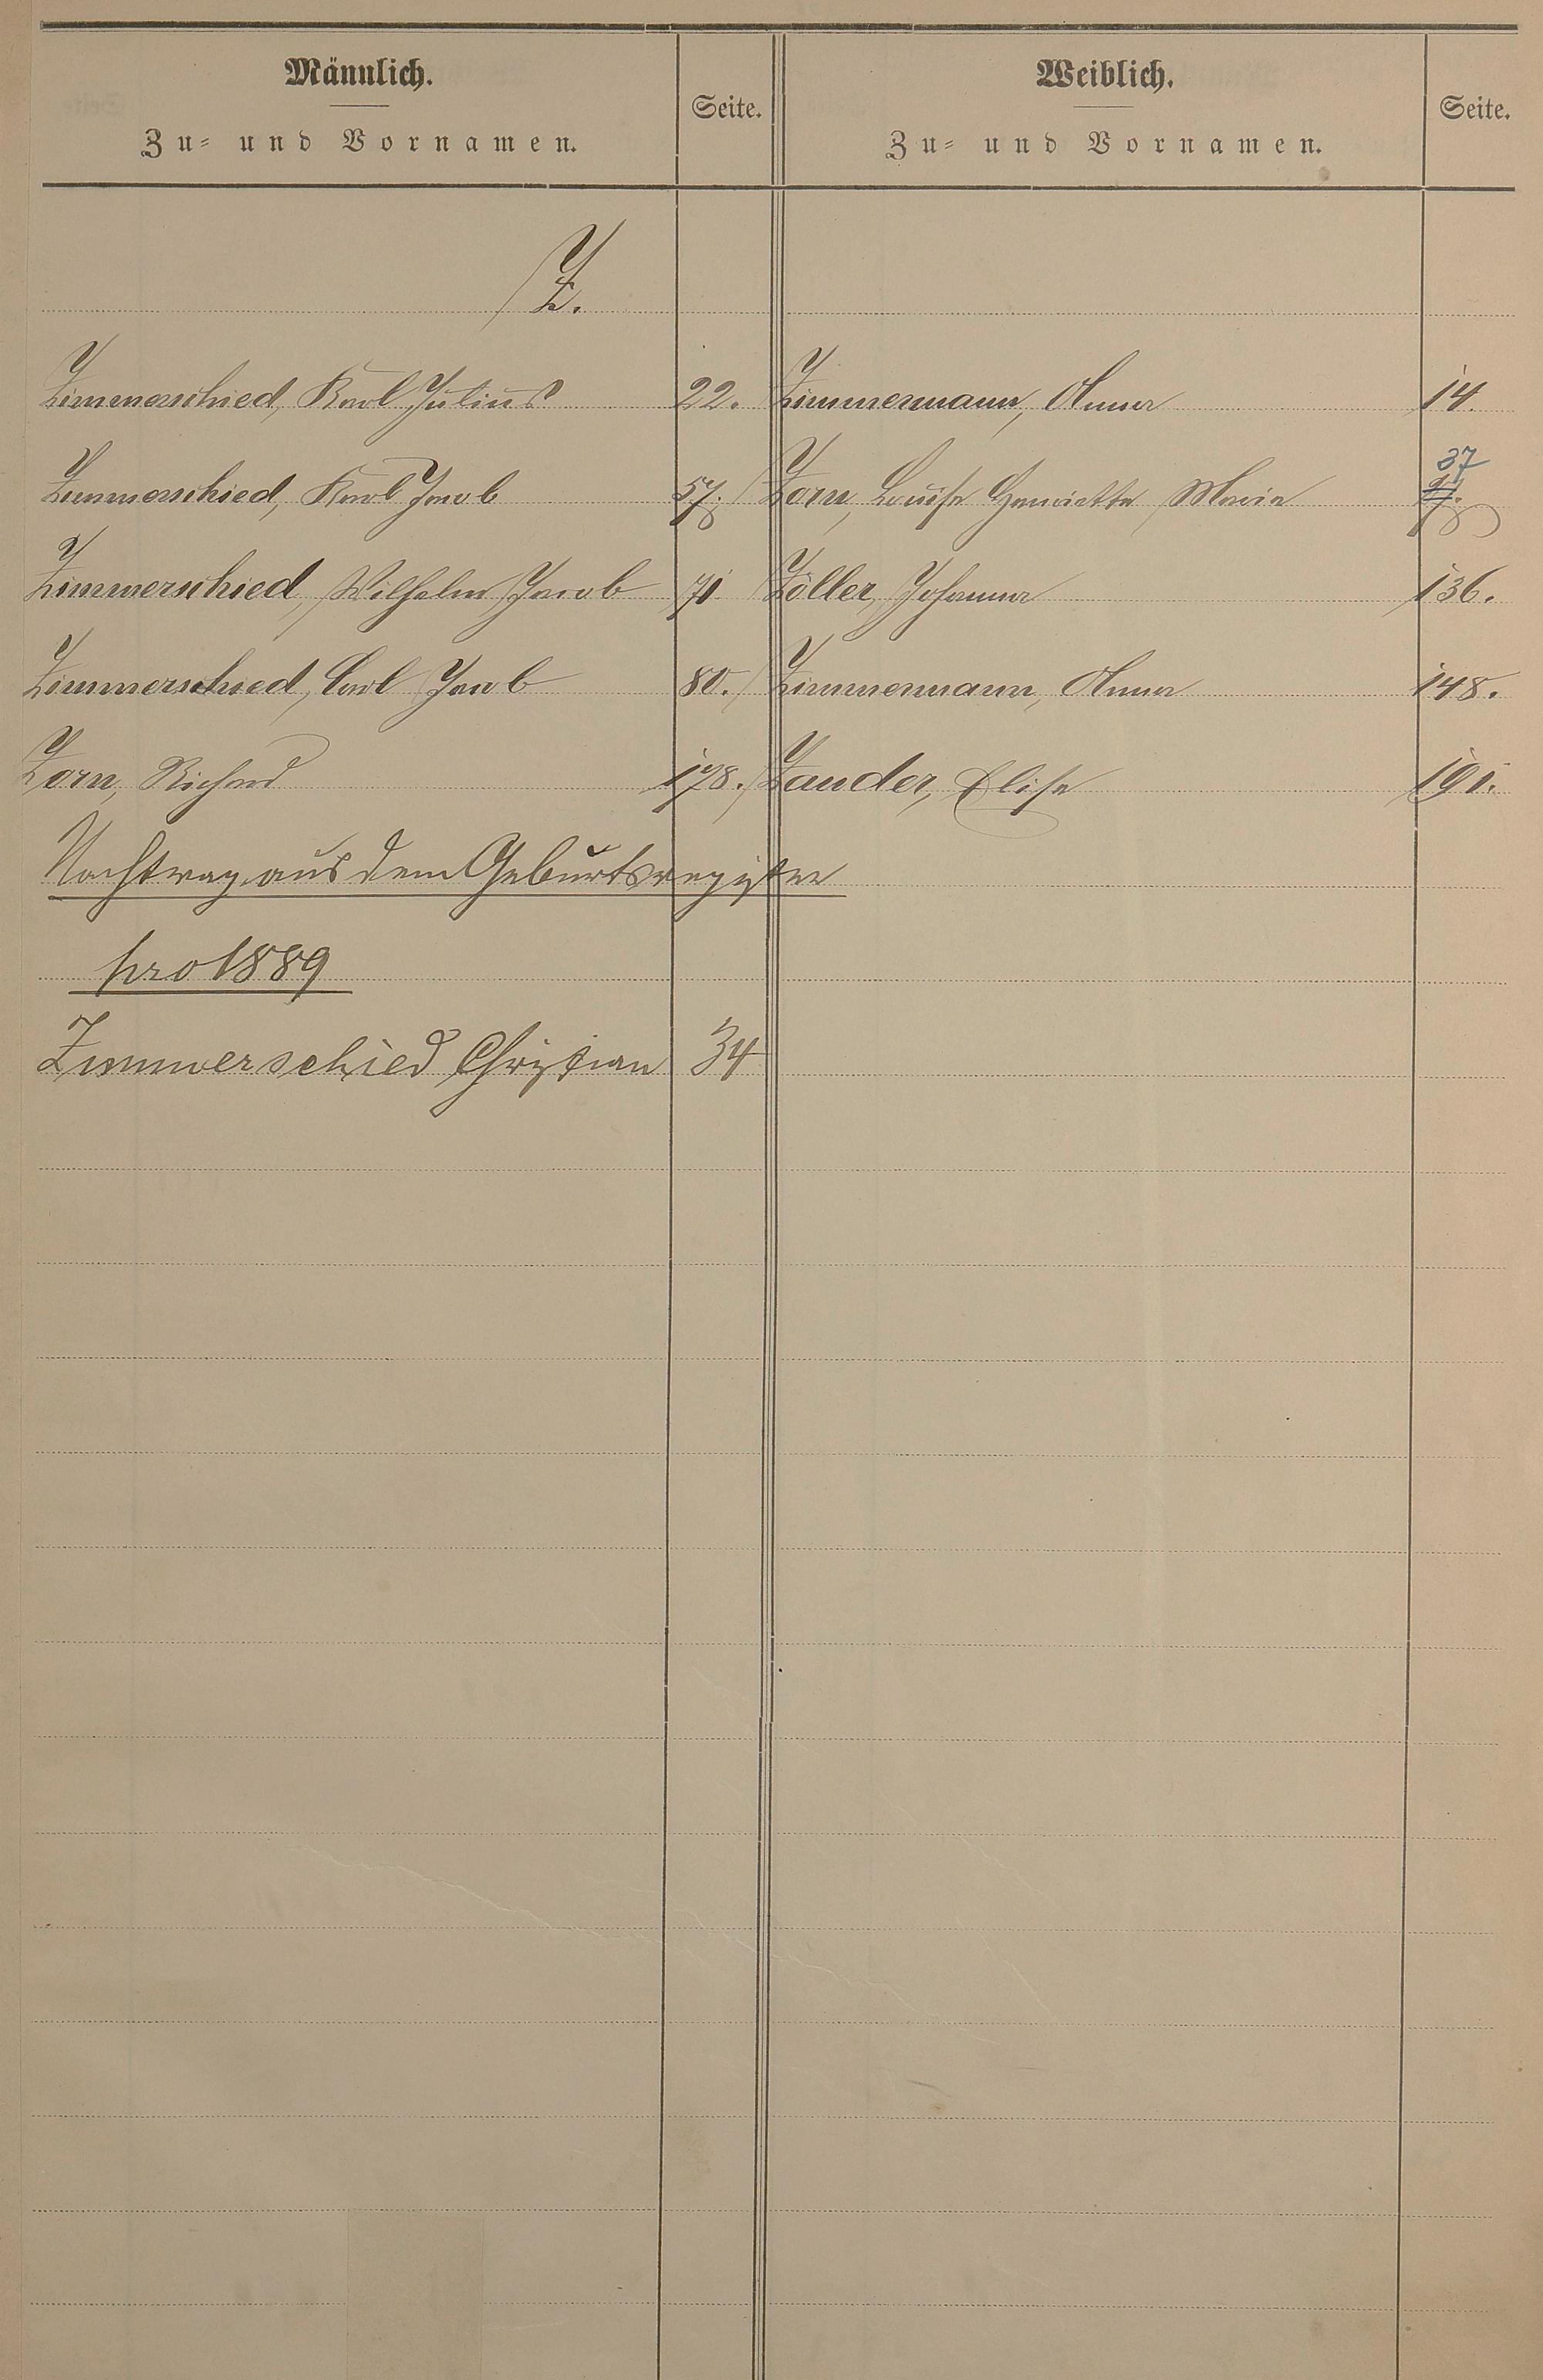 Männlich.
Zu= und Vornamen.
Seite.
Weiblich.
Zu= und Vornamen.
Seite.
Z.
Zimmerschied, Karl Julius 22.
Zimmerschied, Karl Jacob 57.
Zimmerschied, Wilhelm Jacob 71
Zimmerschied, Carl Jacob 80.
Zorn, Richard 178.
Nachtrag aus dem Geburtsregister
pro 1889
Zimmerschied Christian 34
Zimmermann, Anna 14.
37
Zorn, Louise Henriette Marie
Zöller, Johanna 136.
Zimmermann, Anna 148.
Zander, Elise 191.